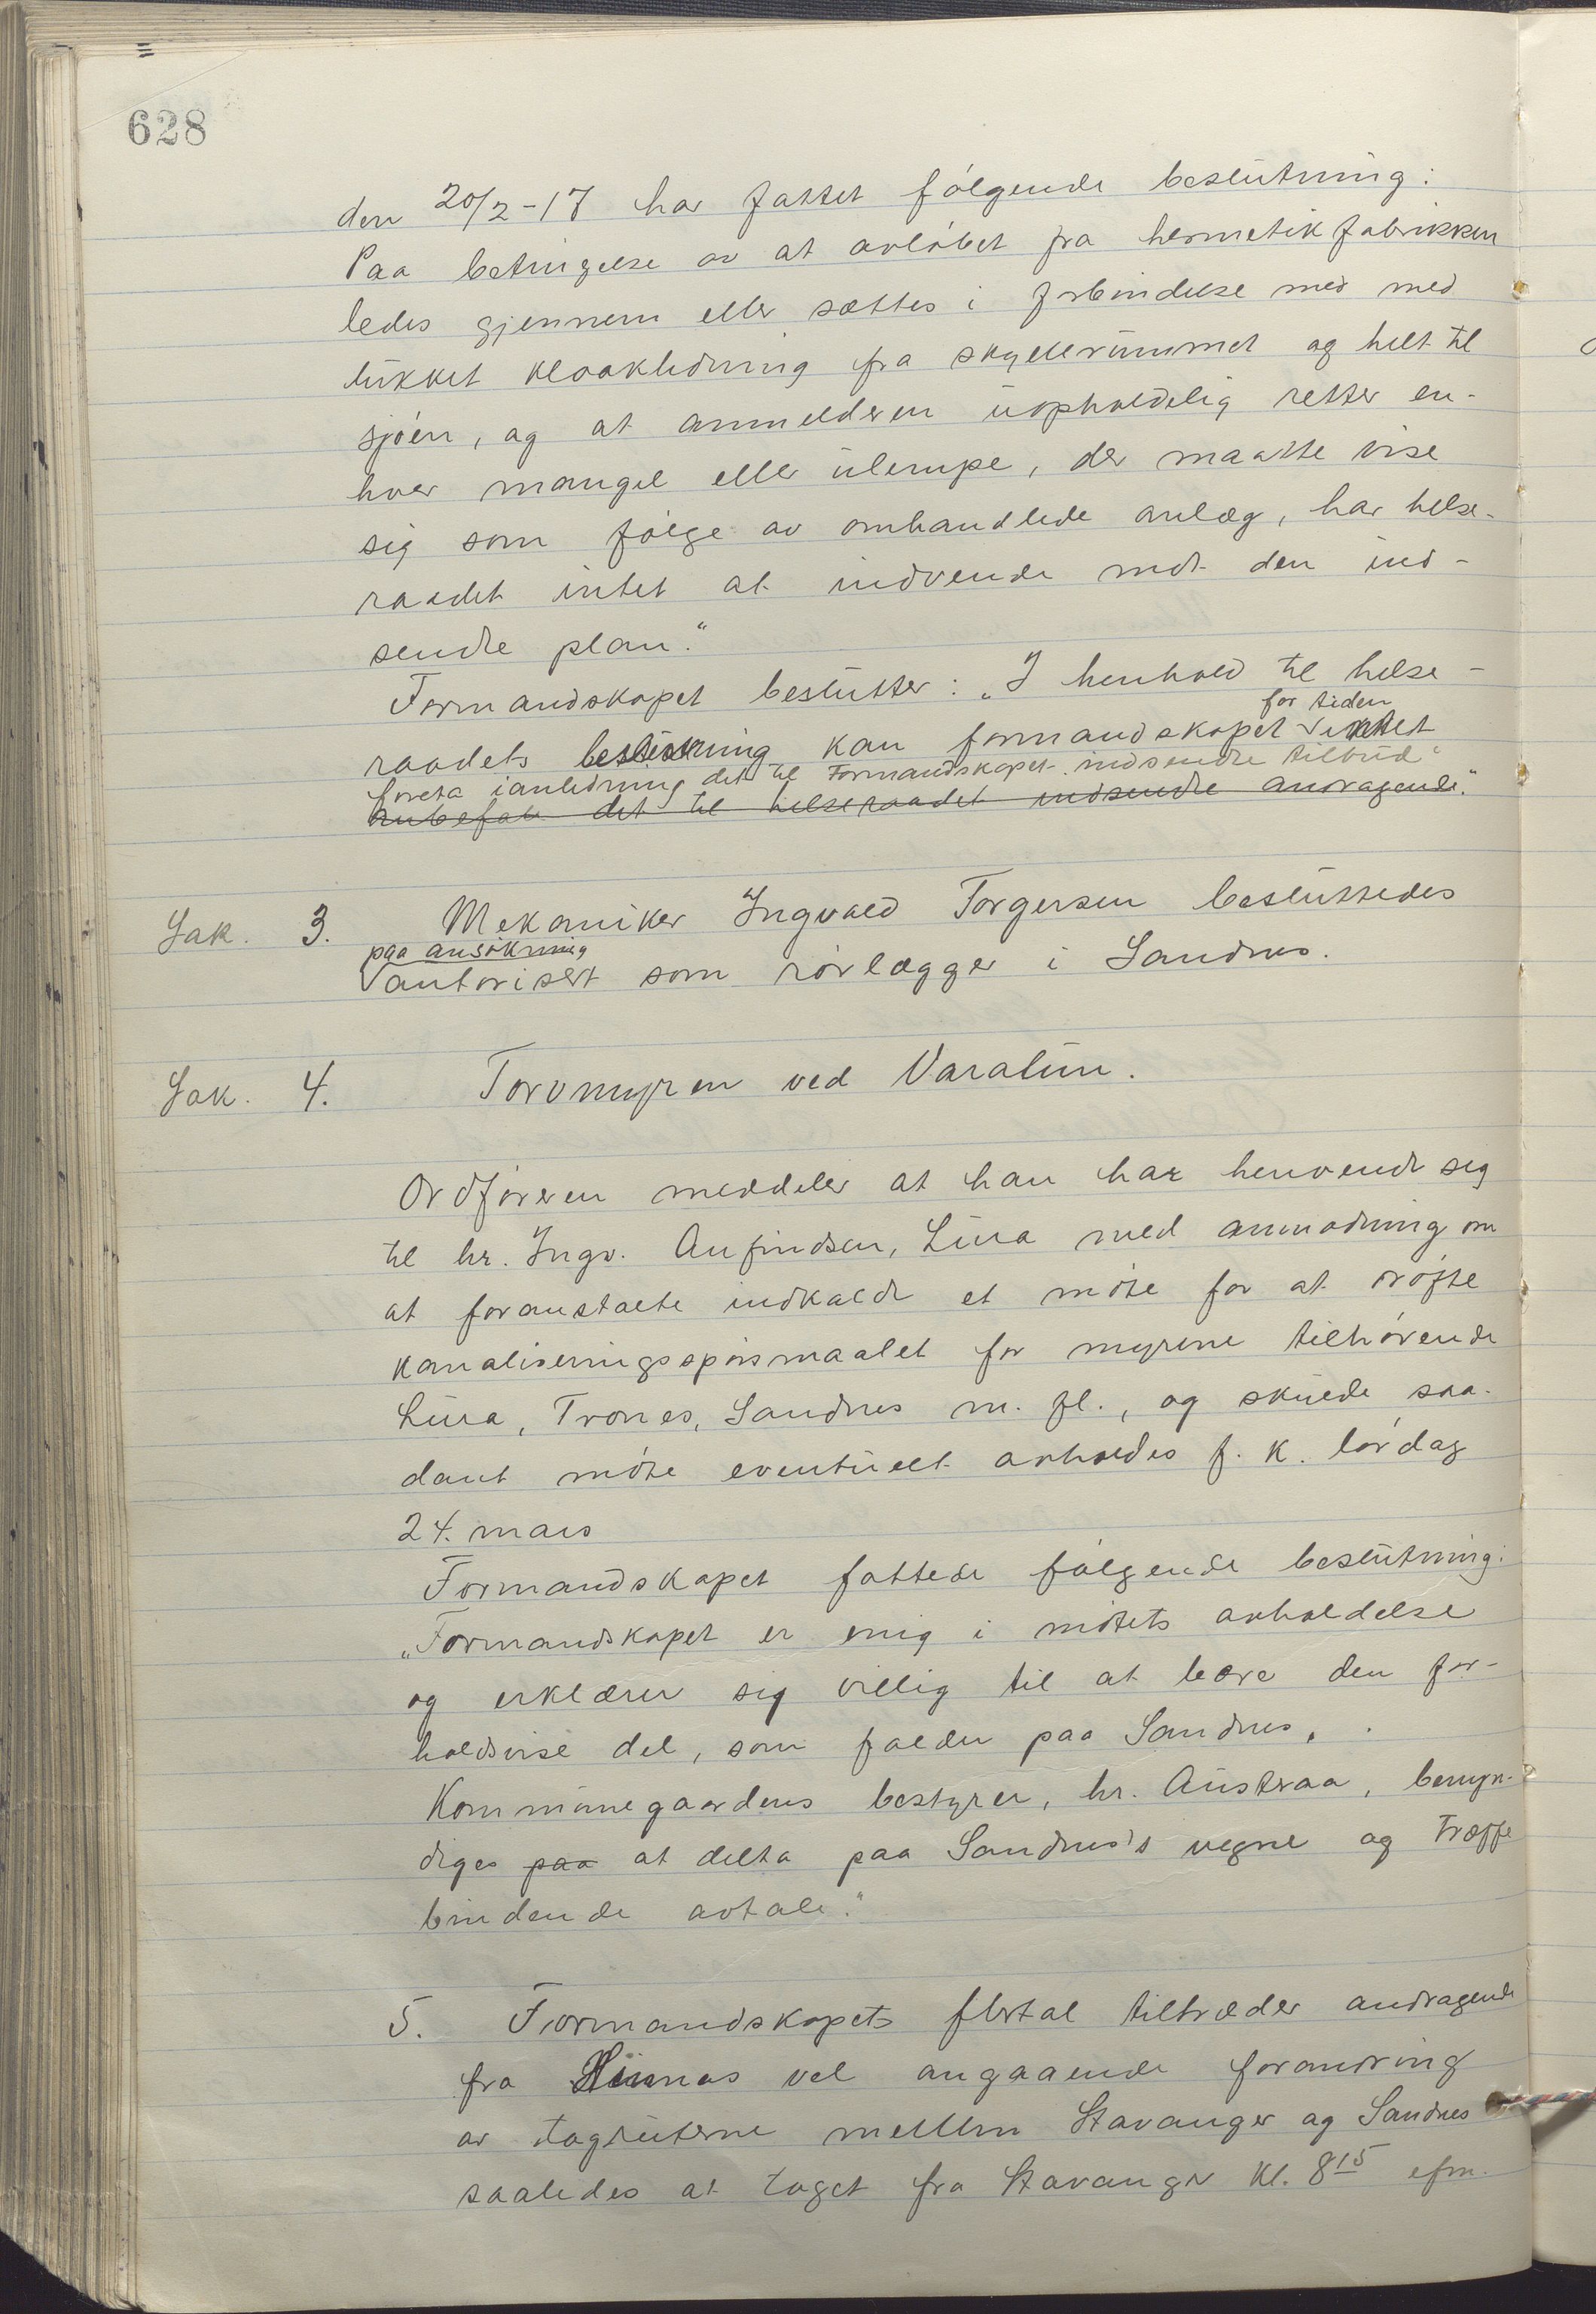 628
den 20/2-17 har fattet følgende beslutning:
Paa betingelse av at avløbet fra hermetikfabrikken
ledes gjennem eller sættes i forbindelse med med
lukket kloakledning fra skyllerummet og helt til
sjøen, og at anmelderen uopholdelig retter en-
hver mangel eller ulempe, der maatte vise
sig som følge av omhandlede anlæg, har helse-
raadet intet at indvende mot den ind-
sendte plan."
Formandskapet beslutter: „I henhold til helse-
for tiden
raadets beslutning kan formandskapet intet
foreta i anledning det til Formandskapet indsendte tilbud"
anbefale det til helseraadet indsendte andragende."
Sak. 3. Mekaniker Ingvald Torgersen besluttedes
paa ansøkning
autorisert som rørlægger i Sandnes.
Sak. 4. Torvmyren ved Varatun.
Ordføreren meddeler at han har henvendt seg
til hr. Ingv. Anfindsen, Lura med anmodning om
at foranstalte indkaldt et møte for at drøfte
kanaliseringsspørsmaalet for myrene tilhørende
Lura, Trones, Sandnes m. fl., og skulde saa-
dant møte eventuelt avholdes f. k. lørdag
24. mars
Formandskapet fattede følgende beslutning:
„Formandskapet er enig i møtets avholdelse
og erklærer sig villig til at bære den for-
holdsvise del, som falder paa Sandnes.
Kommunegaardens bestyrer, hr. Austraa, bemyn-
diges paa at delta paa Sandnes's vegne og træffe
bindende avtale."
5. Formandskapets flertal tiltræder andragende
fra Hinnas vel angaaende forandring
av togruterne mellem Stavanger og Sandnes
saaledes at toget fra Stavanger kl. 8 15 efm.